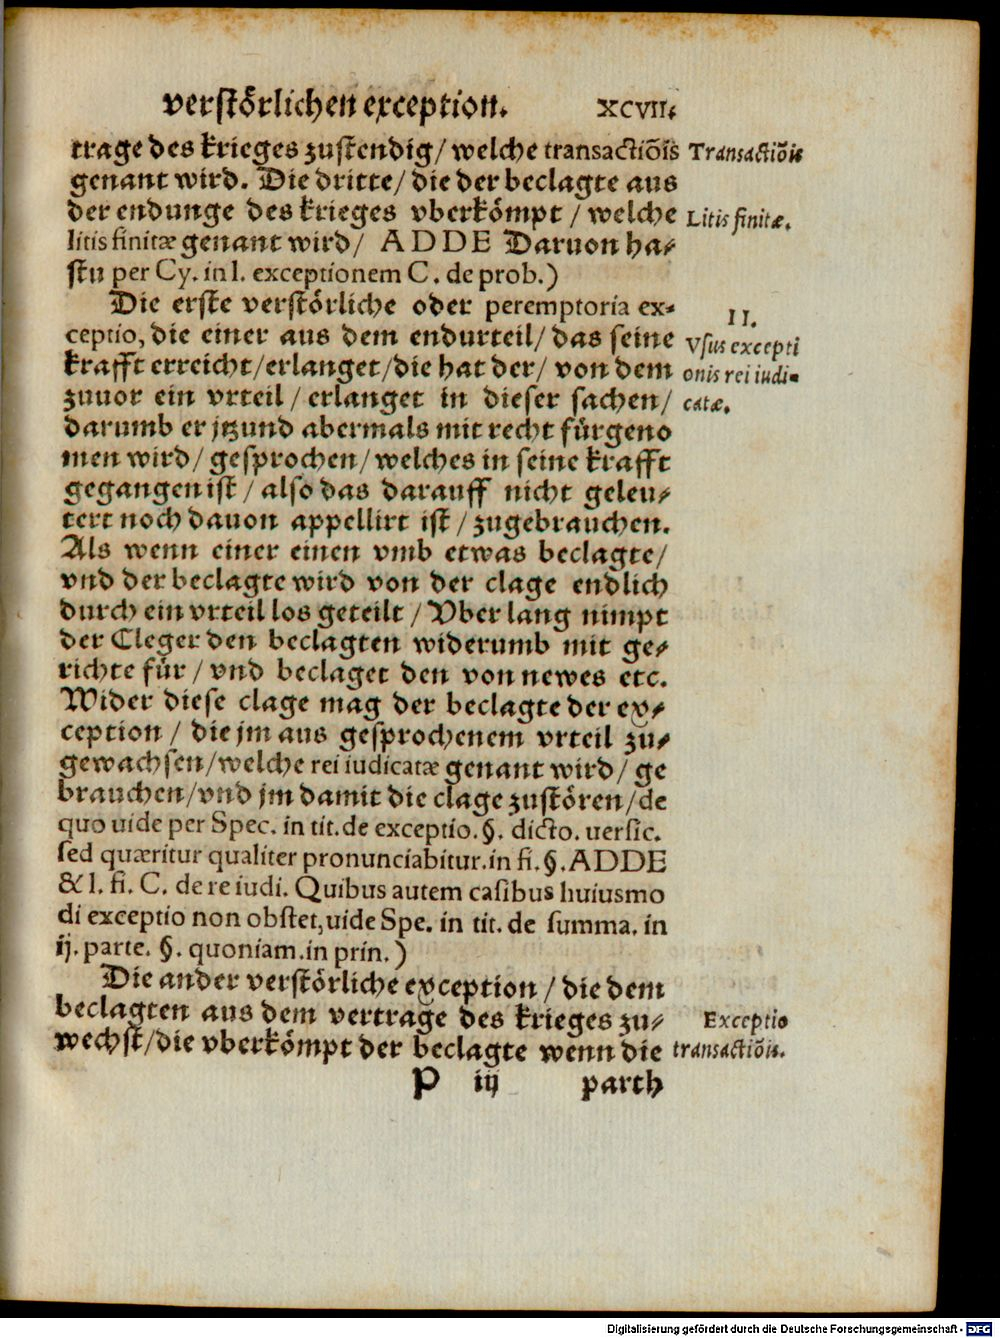 verstörlichen exception. XCVII.
trage des krieges zustendig/ welche transactiōis
genant wird. Die dritte/ die der beclagte aus
der endunge des krieges vberkömpt / welche
litis finitæ genant wird/ ADDE Daruon ha-
stu per Cy. in l. exceptionem C. de prob.)
Die erste verstörliche oder peremptoria ex-
ceptio, die einer aus dem endurteil/ das seine
krafft erreicht/erlanget/die hat der/ von dem
zuuor ein vrteil / erlanget in dieser sachen/
darumb er jtzund abermals mit recht fürgeno
men wird/ gesprochen/ welches in seine krafft
gegangen ist / also das darauff nicht geleu-
tert noch dauon appellirt ist / zugebrauchen.
Als wenn einer einen vmb etwas beclagte/
vnd der beclagte wird von der clage endlich
durch ein vrteil los geteilt / Vber lang nimpt
der Cleger den beclagten widerumb mit ge-
richte für / vnd beclaget den von newes etc.
Wider diese clage mag der beclagte der ex-
ception / die jm aus gesprochenem vrteil zu-
gewachsen/welche rei iudicatæ genant wird/ ge
brauchen/vnd jm damit die clage zustören/de
quo uide per Spec. in tit. de exceptio. §. dicto. uersic.
sed quæritur qualiter pronunciabitur. in fi. §. ADDE
& l. fi. C. de re iudi. Quibus autem casibus huiusmo
di exceptio non obstet, uide Spe. in tit. de summa. in
ij. parte. §. quoniam. in prin. )
Die ander verstörliche exception / die dem
beclagten aus dem vertrage des krieges zu-
wechst/die vberkömpt der beclagte wenn die
P iij parth
Transactiōis
Litis finitæ.
II.
Vsus excepti
onis rei iudi-
catæ.
Exceptio
transactiōis.
Digitalisierung gefördert durch die Deutsche Forschungsgemeinschaft - DFG